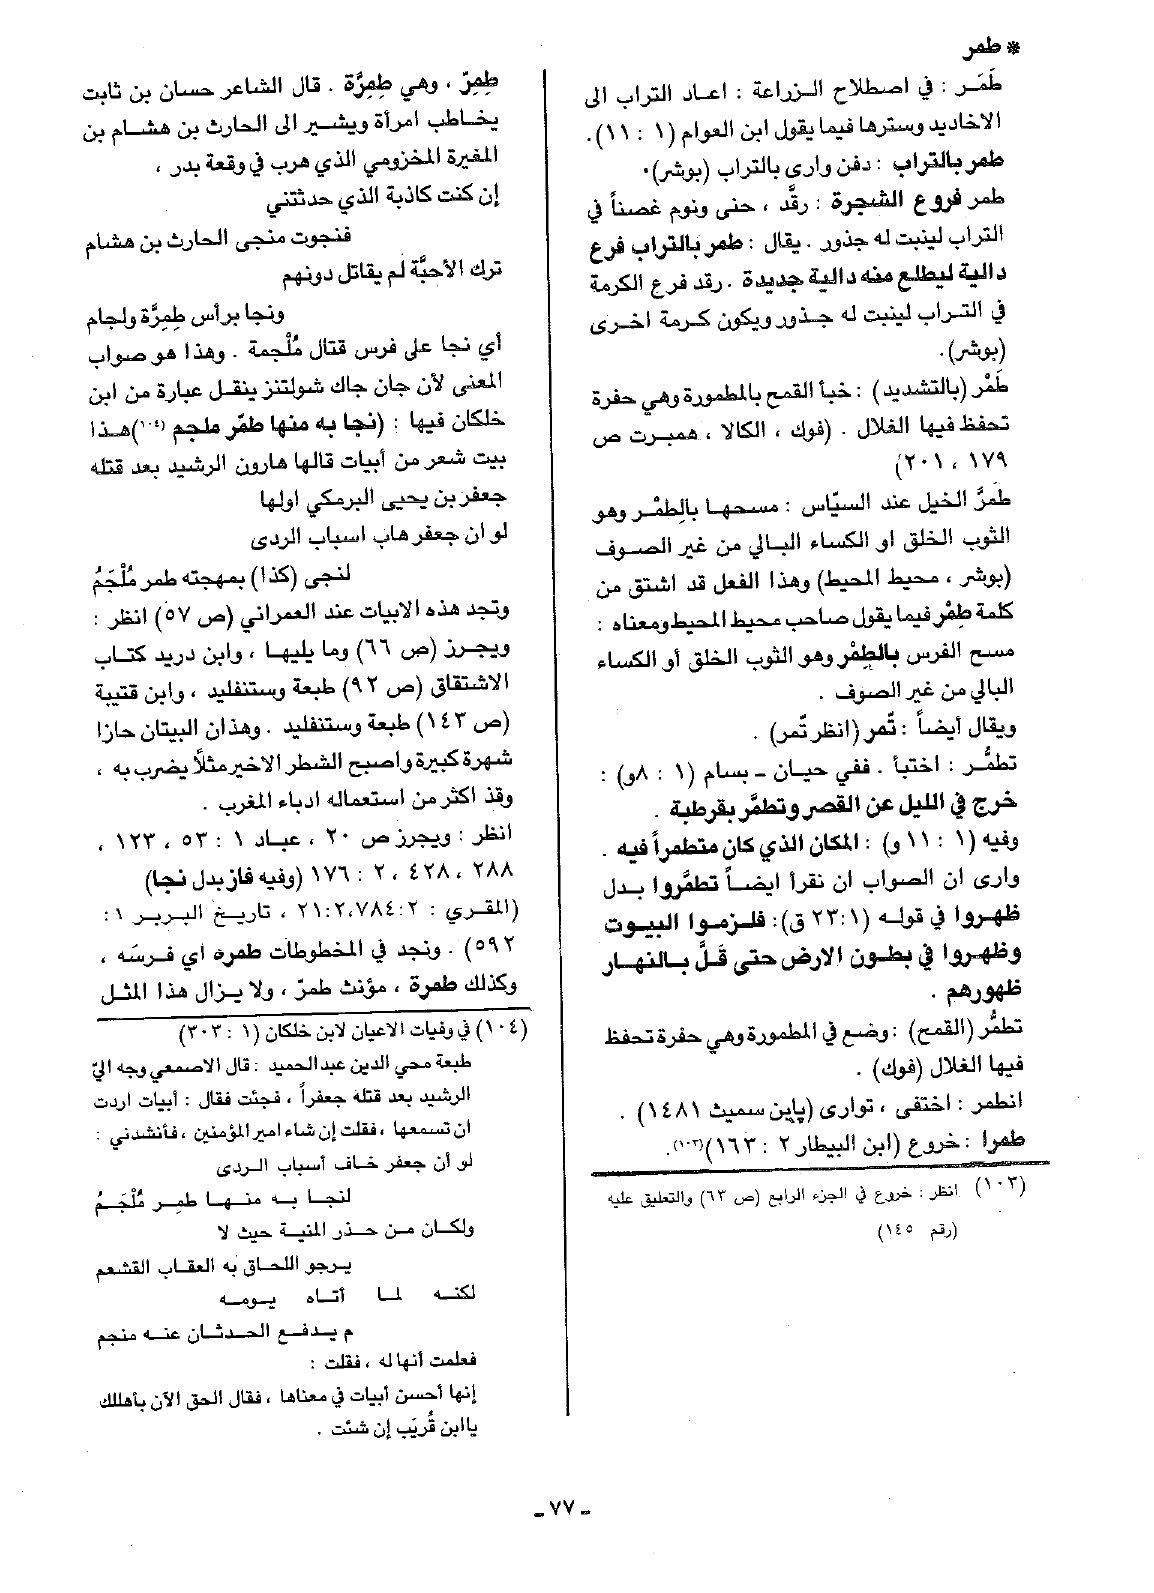 * طمر
طَمَر : في اصطلاح الزراعة : اعاد التراب الى
الاخاديد وسترها فيما يقول ابن العوام (١ : ١١).
طمر بالتراب : دفن وارى بالتراب (بوشر).
طمر فروع الشجرة : رقَّد ، حنى ونوم غصناً في
التراب لينبت له جذور . يقال : طمر بالتراب فرع
دالية ليطلع منه دالية جديدة . رقد فرع الكرمة
في التراب لينبت له جذور ويكون كرمة اخرى
(بوشر).
طَمْر (بالتشديد) : خبأ القمح بالمطمورة وهي حفرة
تحفظ فيها الغلال . (فوك ، الكالا ، همبرت ص
١٧٩ ، ٢٠١)
طَمَرَّ الخيل عند السيّاس : مسحها بالطِمْر وهو
الثوب الخلق او الكساء البالي من غير الصوف
(بوشر ، محيط المحيط) وهذا الفعل قد اشتق من
كلمة طِمْر فيما يقول صاحب محيط المحيط ومعناه :
مسح الفرس بالطِمْر وهو الثوب الخلق أو الكساء
البالي من غير الصوف .
ويقال أيضاً : تّمر (انظر تّمر) .
تطمُّر : اختبأ . ففي حيان - بسام (١ : ٨و) :
خرج في الليل عن القصر وتطمَّر بقرطبة .
وفيه (١ : ١١ و) : المكان الذي كان متطمراً فيه .
وارى ان الصواب ان نقرأ ايضاً تطمَّروا بدل
ظهروا في قوله (١ :٢٣ ق): فلزموا البيوت
وظهروا في بطون الارض حتى قَلَّ بالنهار
ظهورهم .
تطمُّر (القمح) : وضع في المطمورة وهي حفرة تحفظ
فيها الغلال (فوك) .
انطمر : اختفى ، توارى (پاين سميث ١٤٨١) .
طمرا : خروع (ابن البيطار ٢ : ١٦٣)(١٠٣).
(١٠٣) انظر : خروع في الجزء الرابع (ص ٦٣) والتعليق عليه
(رقم ١٤٥)
طِمِرّ ، وهي طِمِرَّة . قال الشاعر حسان بن ثابت
يخاطب امرأة ويشير الى الحارث بن هشام بن
المغيرة المخزومي الذي هرب في وقعة بدر ،
إن كنت كاذبة الذي حدثتني
فنجوت منجى الحارث بن هشام
ترك الأحبَّة لم يقاتل دونهم
ونجا برأس طِمِرَّة ولجام
أي نجا على فرس قتال مُلْجمة . وهذا هو صواب
المعنى لأن جان جاك شولتنز ينقل عبارة من ابن
خلكان فيها : (نجا به منها طمّر ملجم (١٠٤)هذا
بيت شعر من أبيات قالها هارون الرشيد بعد قتله
جعفر بن يحيى البرمكي اولها
لو ان جعفر هاب اسباب الردى
لنجى (كذا) بمهجته طمر مُلْجَمُ
وتجد هذه الابيات عند العمراني (ص ٥٧) انظر :
ويجرز (ص ٦٦) وما يليها ، وابن دريد كتاب
الاشتقاق (ص ٩٢) طبعة وستنفليد ، وابن قتيبة
(ص ١٤٣) طبعة وستنفليد . وهذان البيتان حازا
شهرة كبيرة واصبح الشطر الاخير مثلاً يضرب به ،
وقذ اكثر من استعماله ادباء المغرب .
انظر : ويجرز ص ٢٠ ، عباد ١ : ٥٣ ، ١٢٣ ،
٢٨٨ ، ٤٢٨ ، ٢ : ١٧٦ (وفيه فاز بدل نجا)
(المقري : ٢:٧٨٤،٢:٢١ ، تاريخ البربر ١ :
٥٩٢) . ونجد في المخطوطات طمره اي فرسَه ،
وكذلك طمرة ، مؤنث طمرّ ، ولا يزال هذا المثل
(١٠٤) في وفيات الاعيان لابن خلكان (١ : ٣٠٣)
طبعة محي الدين عبد الحميد : قال الاصمعي وجه اليّ
الرشيد بعد قتله جعفراً ، فجئت فقال : أبيات اردت
ان تسمعها ، فقلت إن شاء امير المؤمنين ، فأنشدني :
لو أن جعفر خاف أسباب الردى
لنجا به منها طمر مُلْجَمُ
ولكان من حذر المنية حيث لا
يرجو اللحاق به العقاب القشعم
لكنه لما أتاه يومه
م يدفع الحدثان عنه منجم
فعلمت أنها له ، فقلت :
إنها أحسن أبيات في معناها ، فقال الحق الآن بأهلك
ياابن قُريَب إن شئت .
- ٧٧ -